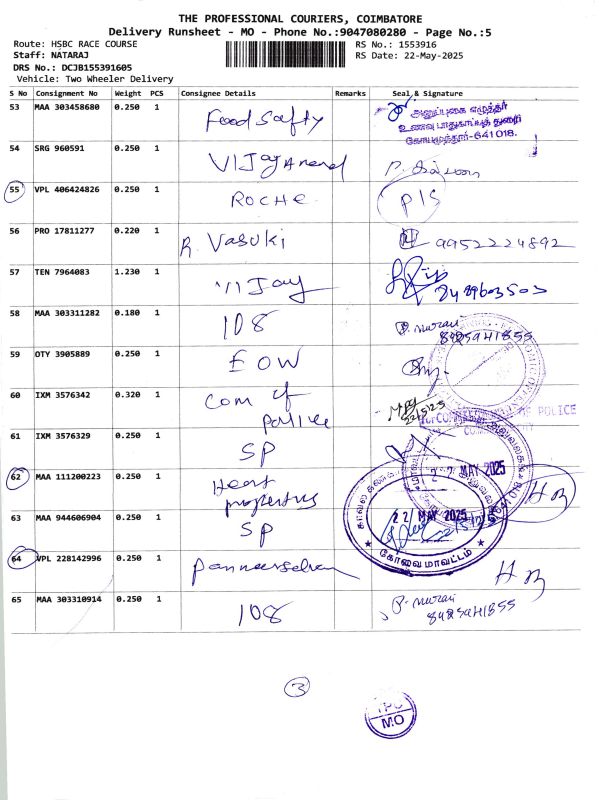 THE PROFESSIONAL COURIERS, COIMBATORE
Delivery Runsheet - MO - Phone No.:9047080280 - Page No.:5
Route: HSBC RACE COURSE
RS No.: 1553916
Staff: NATARAJ
RS Date: 22-May-2025
DRS No.: DCJB155391605
Vehicle: Two Wheeler Delivery
S No Consignment No Weight PCS Consignee Details Remarks Seal & Signature
53 MAA 303458680 0.250 1 Food Safty
அனுப்புகை எழுத்தர்
உணவு பாதுகாப்புத் துறை
கோயமுத்தூர்-641018.
54 SRG 960591 0.250 1 VIJay Anand
55 VPL 406424826 0.250 1 ROCHE P1S
56 PRO 17811277 0.220 1 R. Vasuki 9952224892
57 TEN 7964083 1.230 1 VIJay
58 MAA 303311282 0.180 1 108 P. murari
8925941855
59 OTY 3905889 0.250 1 EOW
60 IXM 3576342 0.320 1 Com of
police
22/5/25
OF POLICE
61 IXM 3576329 0.250 1 SP
MAY 2025
62 MAA 111200223 0.250 1 Heart
properties
63 MAA 944606904 0.250 1 SP
22 MAY 2025
கோவை மாவட்டம்
64 VPL 228142996 0.250 1 Panneerselvam
65 MAA 303310914 0.250 1 108 P. murari
8925941855
3
TPC
MO